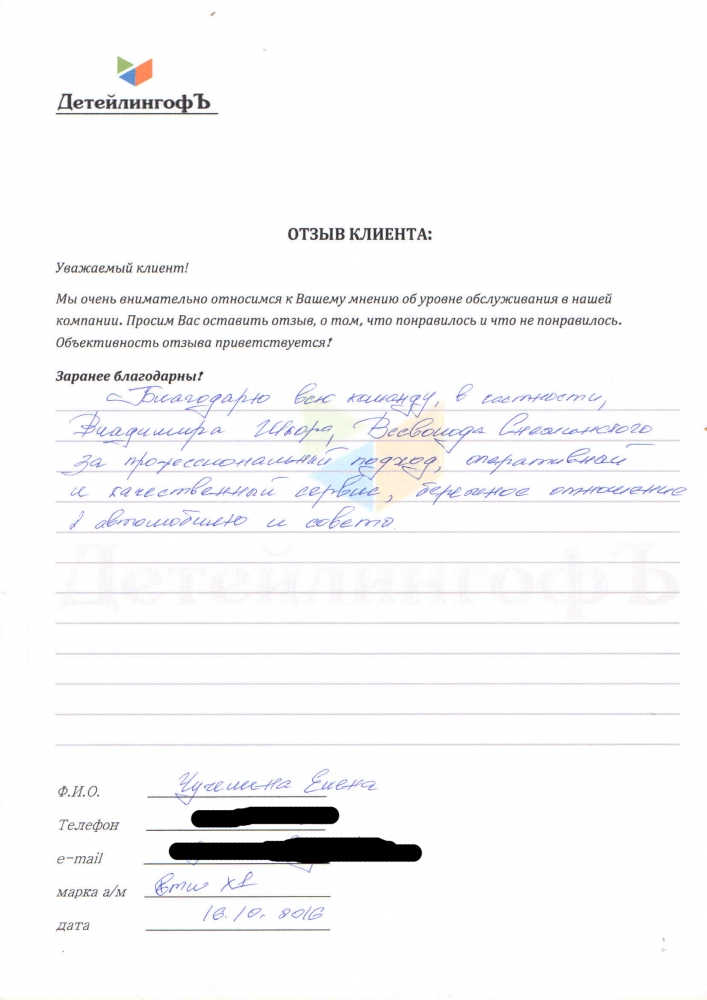 ДетейлингофЪ
ОТЗЫВ КЛИЕНТА:
Уважаемый клиент!
Мы очень внимательно относимся к Вашему мнению об уровне обслуживания в нашей
компании. Просим Вас оставить отзыв, о том, что понравилось и что не понравилось.
Объективность отзыва приветствуется!
Заранее благодарны!
Благодарю всю команду, в частности,
Владимира Шкора, Всеволода
за профессиональный подход, оперативный
и качественный сервис, бережное отношение
к автомобилю и советы.
ДетейлингофЪ
Ф.И.О. Елена
Телефон
e-mail
марка а/м X1
дата 16.10.2016